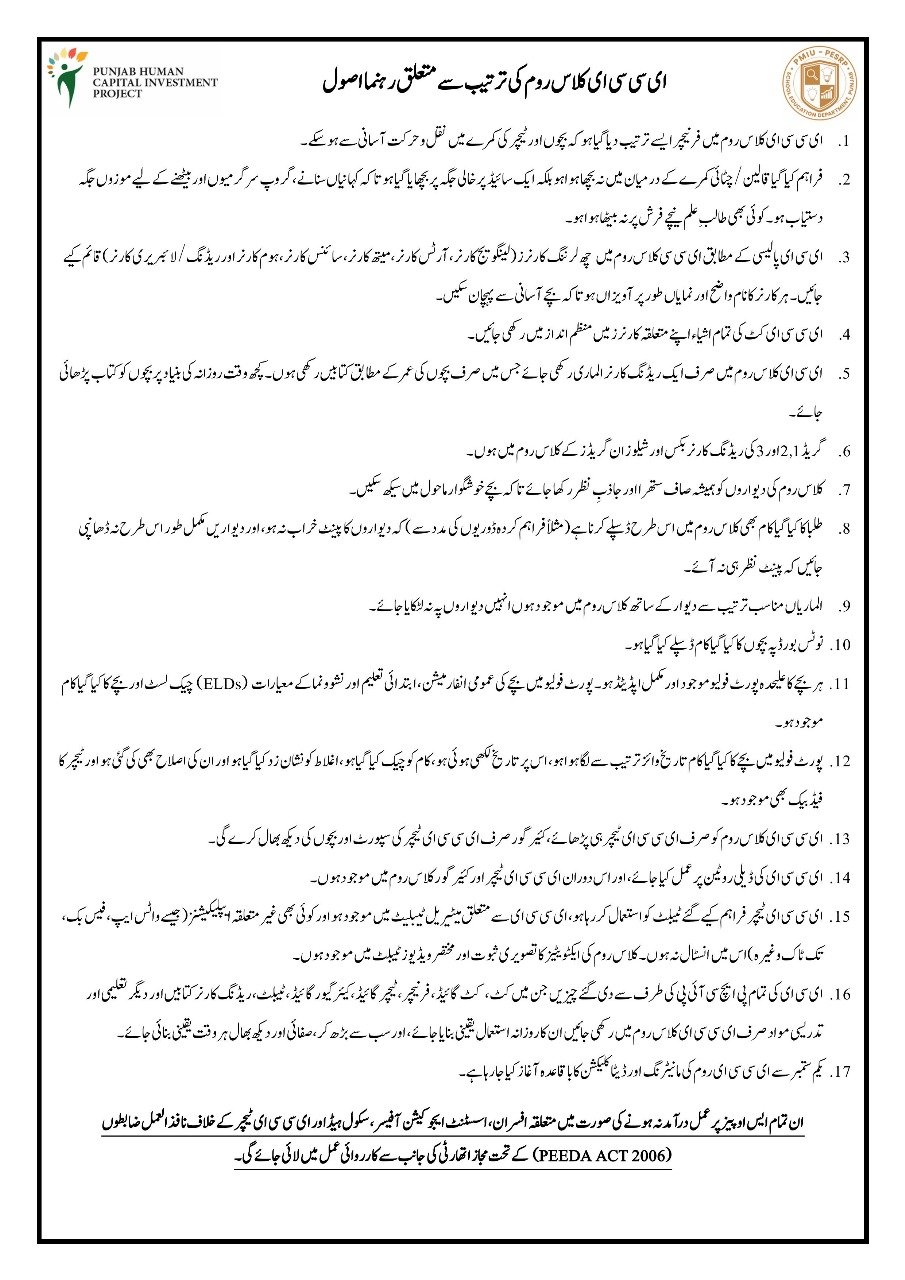 PUNJAB HUMAN
CAPITAL INVESTMENT
PROJECT
ای سی سی ای کلاس روم کی ترتیب سے متعلق رہنما اصول
PMIU - PESRP
SCHOOL EDUCATION DEPARTMENT, PUNJAB
1. ای سی سی ای کلاس روم میں فرنیچر ایسے ترتیب دیا گیا ہو کہ بچوں اور ٹیچر کی کمرے میں نقل و حرکت آسانی سے ہو سکے۔
2. فراہم کیا گیا قالین / چٹائی کمرے کے درمیان میں نہ بچھا ہوا ہو بلکہ ایک سائیڈ پر خالی جگہ پر بچھایا گیا ہو تاکہ کہانیاں سنانے، گروپ سرگرمیوں اور بیٹھنے کے لیے موزوں جگہ
دستیاب ہو۔ کوئی بھی طالب علم نیچے فرش پر نہ بیٹھا ہوا ہو۔
3. ای سی ای پالیسی کے مطابق ای سی سی کلاس روم میں چھ لرننگ کارنرز (لینگویج کارنر، آرٹس کارنر، میتھ کارنر، سائنس کارنر، ہوم کارنر اور ریڈنگ / لائبریری کارنر) قائم کیے
جائیں۔ ہر کارنر کا نام واضح اور نمایاں طور پر آویزاں ہو تاکہ بچے آسانی سے پہچان سکیں۔
4. ای سی سی ای کٹ کی تمام اشیاء اپنے متعلقہ کارنرز میں منظم انداز میں رکھی جائیں۔
5. ای سی ای کلاس روم میں صرف ایک ریڈنگ کارنر الماری رکھی جائے جس میں صرف بچوں کی عمر کے مطابق کتابیں رکھی ہوں۔ کچھ وقت روزانہ کی بنیاد پر بچوں کو کتاب پڑھائی
جائے۔
6. گریڈ 2,1 اور 3 کی ریڈنگ کارنر بکس اور شیلوز ان گریڈز کے کلاس روم میں ہوں۔
7. کلاس روم کی دیواروں کو ہمیشہ صاف ستھرا اور جاذبِ نظر رکھا جائے تاکہ بچے خوشگوار ماحول میں سیکھ سکیں۔
8. طلبا کا کیا گیا کام بھی کلاس روم میں اس طرح ڈسپلے کرنا ہے (مثلاً فراہم کردہ ڈوریوں کی مدد سے) کہ دیواروں کا پینٹ خراب نہ ہو، اور دیواریں مکمل طور اس طرح نہ ڈھانپی
جائیں کہ پینٹ نظر ہی نہ آئے۔
9. الماریاں مناسب ترتیب سے دیوار کے ساتھ کلاس روم میں موجود ہوں انہیں دیواروں پہ نہ لٹکایا جائے۔
10. نوٹس بورڈ پہ بچوں کا کیا گیا کام ڈسپلے کیا گیا ہو۔
11. ہر بچے کا علیحدہ پورٹ فولیو موجود اور مکمل اپڈیٹڈ ہو۔ پورٹ فولیو میں بچے کی عمومی انفارمیشن، ابتدائی تعلیم اور نشوونما کے معیارات (ELDs) چیک لسٹ اور بچے کا کیا گیا کام
موجود ہو۔
12. پورٹ فولیو میں بچے کا کیا گیا کام تاریخ وائز ترتیب سے لگا ہوا ہو، اس پر تاریخ لکھی ہوئی ہو، کام کو چیک کیا گیا ہو، اغلاط کو نشان زد کیا گیا ہو اور ان کی اصلاح بھی کی گئی ہو اور ٹیچر کا
فیڈ بیک بھی موجود ہو۔
13. ای سی سی ای کلاس روم کو صرف ای سی سی ای ٹیچر ہی پڑھائے، کئیر گور صرف ای سی سی ای ٹیچر کی سپورٹ اور بچوں کی دیکھ بھال کرے گی۔
14. ای سی سی ای کی ڈیلی روٹین پر عمل کیا جائے، اور اس دوران ای سی سی ای ٹیچر اور کئیر گور کلاس روم میں موجود ہوں۔
15. ای سی سی ای ٹیچر فراہم کیے گئے ٹیبلٹ کو استعمال کر رہا ہو، ای سی سی ای سے متعلق میٹیریل ٹیبلیٹ میں موجود ہو اور کوئی بھی غیر متعلقہ ایپلیکیشنز (جیسے واٹس ایپ، فیس بک،
ٹک ٹاک وغیرہ) اس میں انسٹال نہ ہوں۔ کلاس روم کی ایکٹویٹیز کا تصویری ثبوت اور مختصر ویڈیوز ٹیبلٹ میں موجود ہوں۔
16. ای سی ای کی تمام پی ایچ سی آئی پی کی طرف سے دی گئے چیزیں جن میں کٹ، کٹ گائیڈ، فرنیچر، ٹیچر گائیڈ، کیئر گیور گائیڈ، ٹیبلٹ، ریڈنگ کارنر کتابیں اور دیگر تعلیمی اور
تدریسی مواد صرف ای سی سی ای کلاس روم میں رکھی جائیں ان کا روزانہ استعمال یقینی بنایا جائے، اور سب سے بڑھ کر، صفائی اور دیکھ بھال ہر وقت یقینی بنائی جائے۔
17. یکم ستمبر سے ای سی سی ای روم کی مانیٹرنگ اور ڈیٹا کلیکشن کا باقاعدہ آغاز کیا جا رہا ہے۔
ان تمام ایس او پیز پر عمل درآمد نہ ہونے کی صورت میں متعلقہ افسران، اسسٹنٹ ایجوکیشن آفیسر، سکول ہیڈ اور ای سی سی ای ٹیچر کے خلاف نافذ العمل ضابطوں
(PEEDA ACT 2006) کے تحت مجاز اتھارٹی کی جانب سے کارروائی عمل میں لائی جائے گی۔